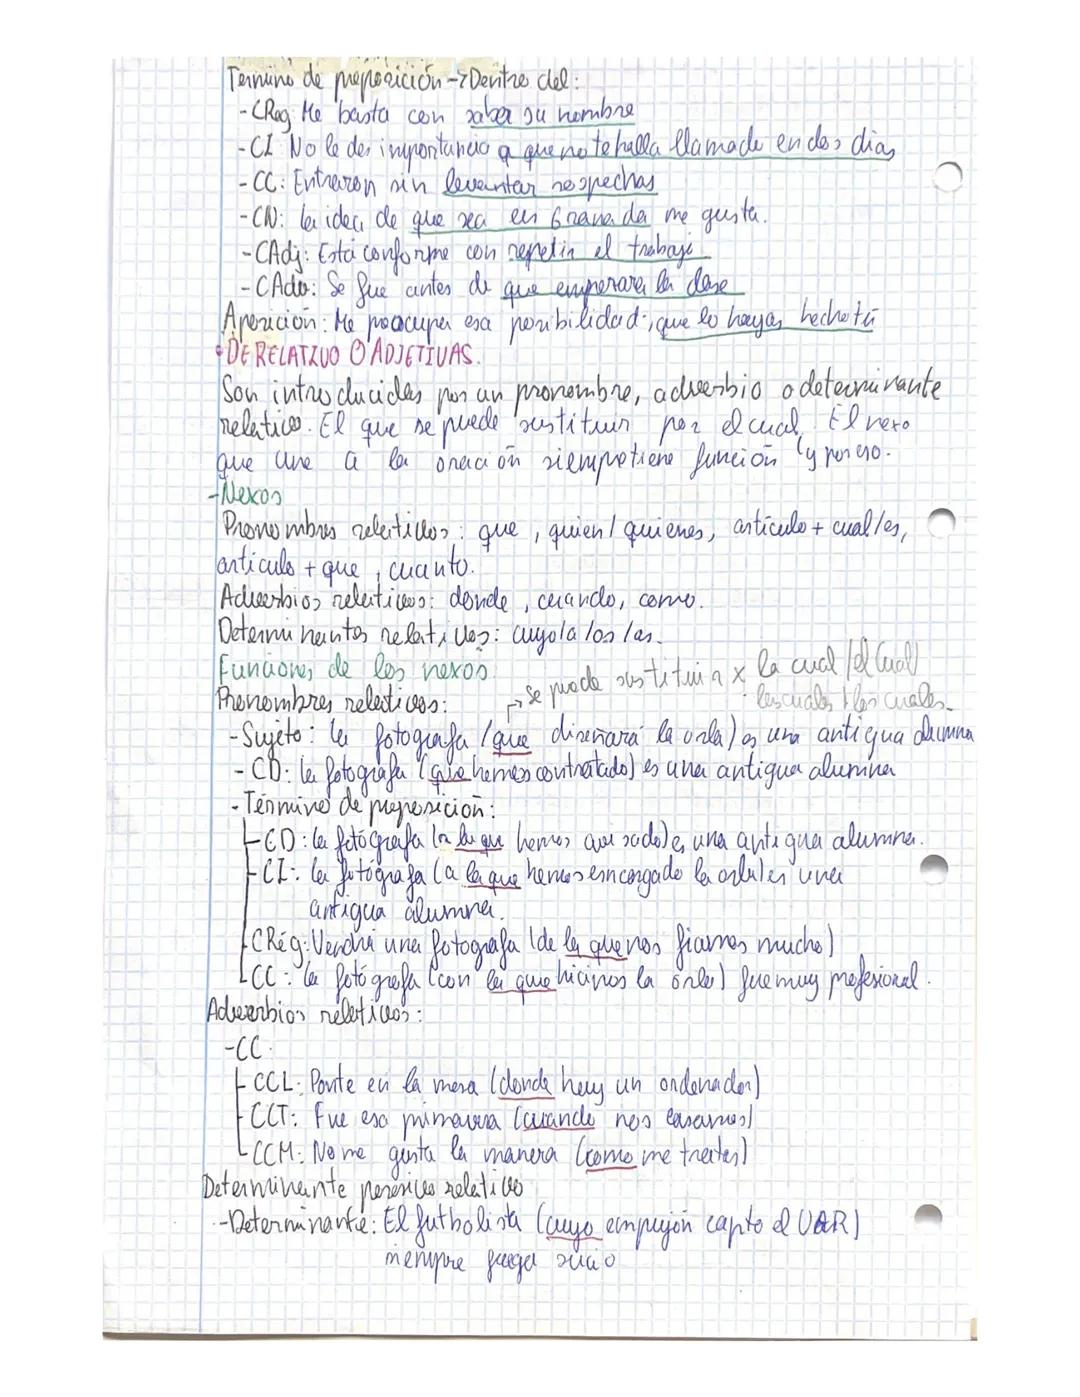 Término de preposición → Dentro del:
- CReg: Me basta con saber su nombre
- CI: No le des importancia a que no te halla llamado en dos días
- CC: Entraron sin levantar sospechas
- CN: la idea de que sea en Granada me gusta.
- CAdj: Está conforme con repetir el trabajo
- CAdv: Se fue antes de que empezara la clase
Aposición: Me preocupa esa posibilidad:, que lo hayas hecho tú
• DE RELATIVO O ADJETIVAS.
Son introducidas por un pronombre, adverbio o determinante
relativo. El que se puede sustituir por el cual. El nexo
que une a la oración siempre tiene función (y por eso.
- Nexos
Pronombres relativos: que, quien/quienes, artículo + cual/es,
artículo + que, cuanto.
Adverbios relativos: donde, cuando, como.
Determinantes relativos: cuyo/a/os/as.
Funciones de los nexos
→ se puede sustituir x la cual/el cual/
las cuales/los cuales.
Pronombres relativos:
- Sujeto: la fotógrafa (que diseñará la orla) es una antigua alumna
- CD: la fotógrafa (que hemos contratado) es una antigua alumna
- Término de preposición:
- CD: la fotógrafa (a la que hemos avisado) es una antigua alumna.
- CI: la fotógrafa (a la que hemos encargado la orla) es una
antigua alumna.
CRég: Vendrá una fotógrafa (de la que nos fiamos mucho)
CC: la fotógrafa (con la que hicimos la orla) fue muy profesional.
Adverbios relativos:
- CC.
- CCL: Ponte en la mesa (donde hay un ordenador)
- CCT: Fue esa primavera (cuando nos casamos)
- CCM: No me gusta la manera (como me tratas)
Determinante posesivo relativo
- Determinante: El futbolista (cuyo empujón captó el VAR)
siempre juega sucio